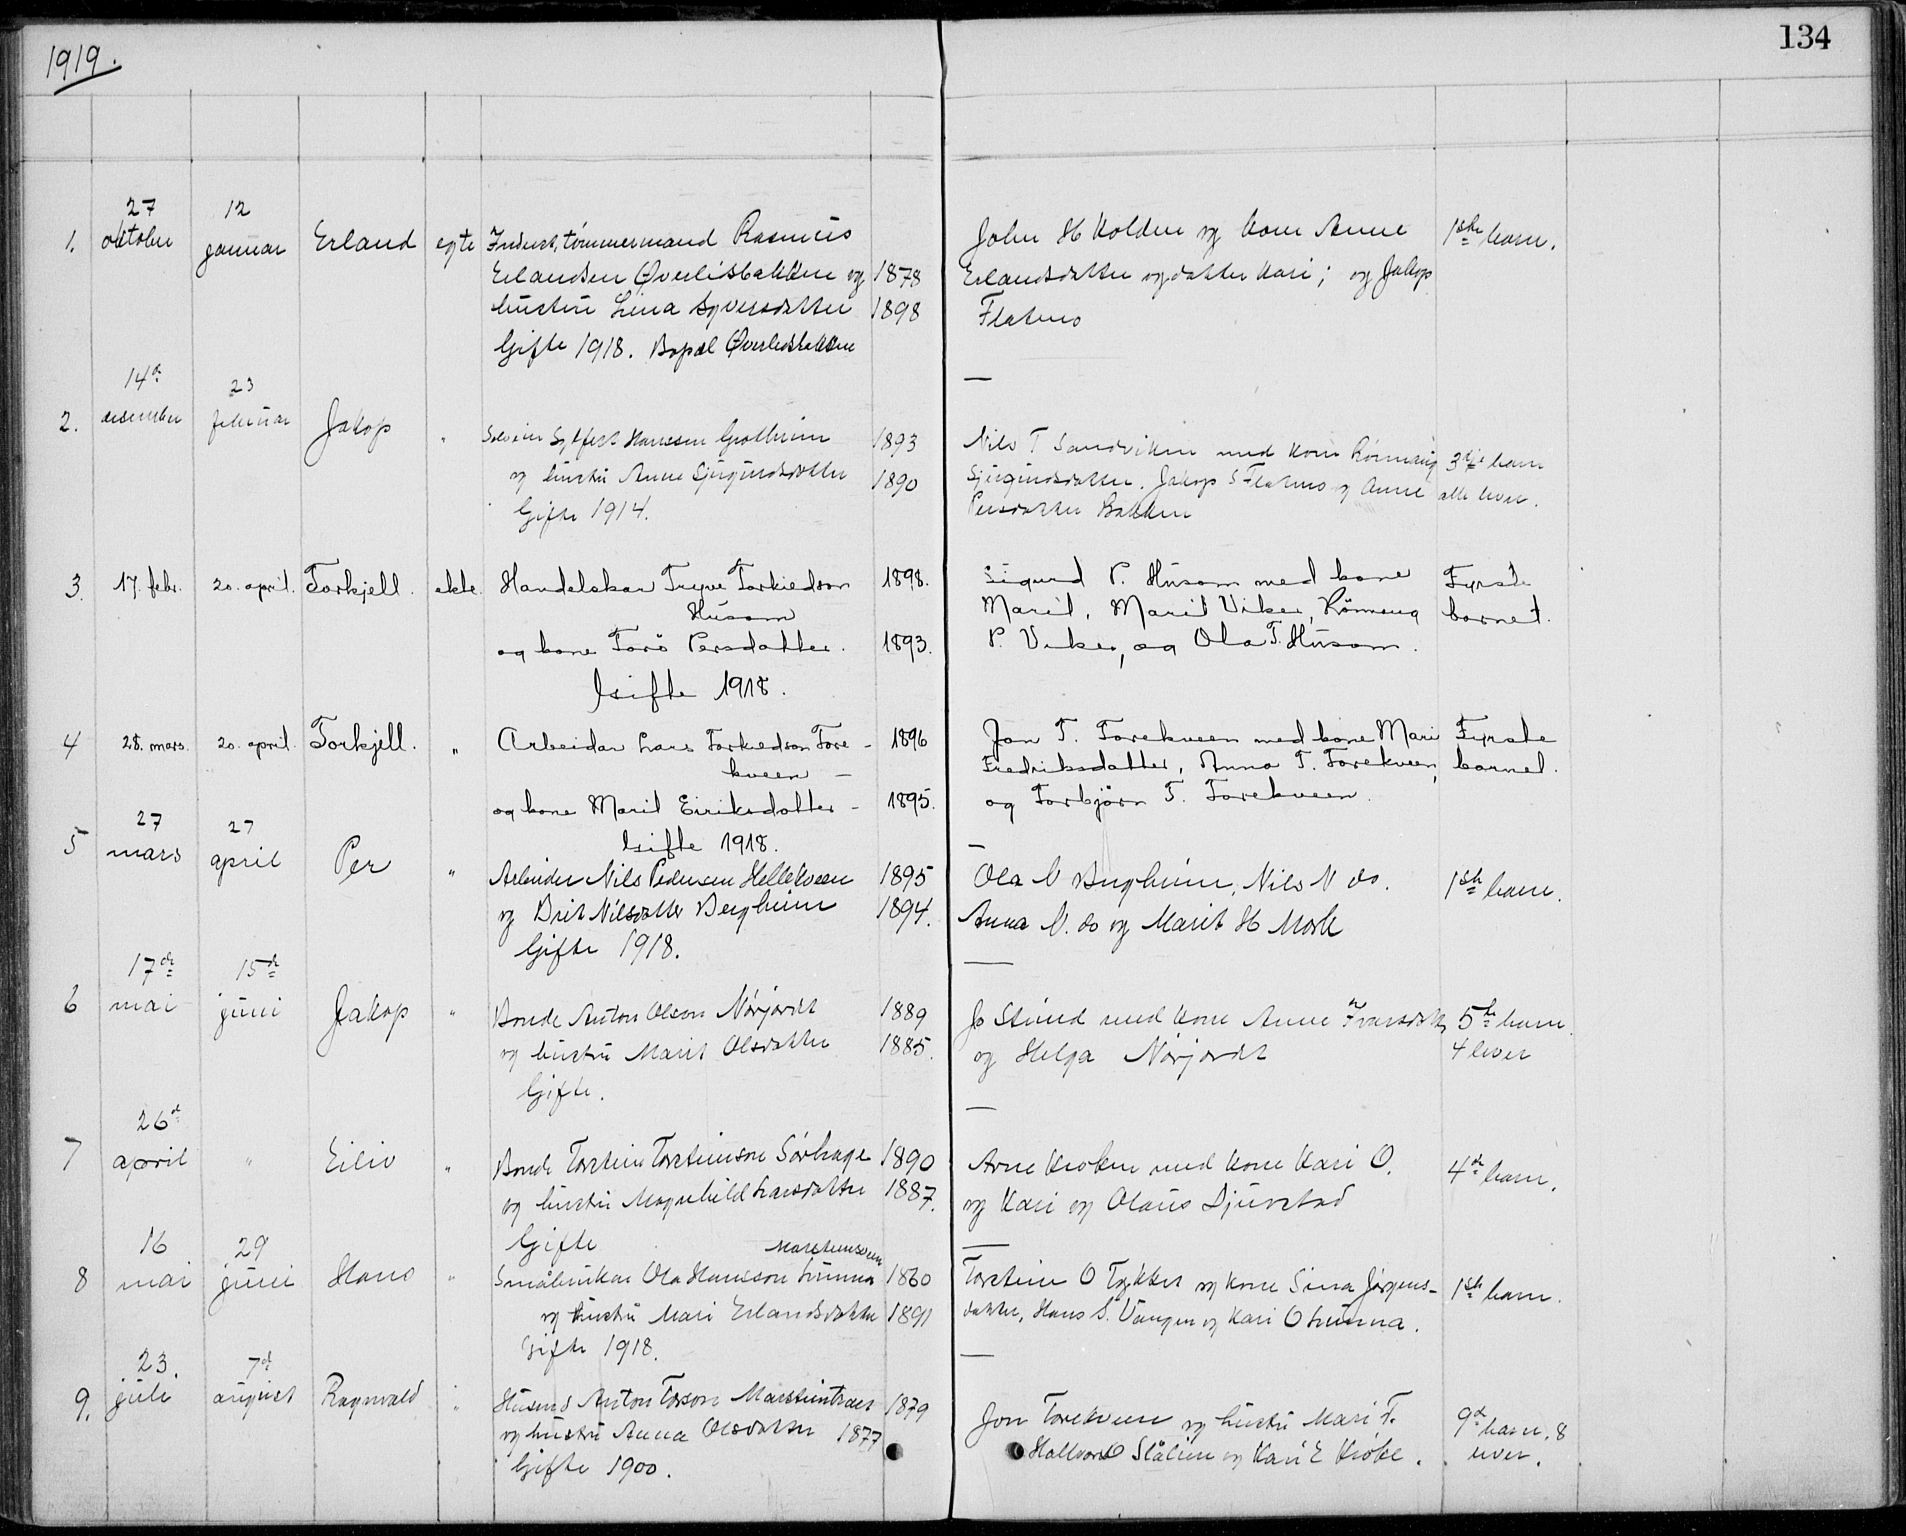 1919.
134
1. 27 oktober 12 januar Erland egte Indust, tømmermand Rasmus
Erlandsen Øverlisbakken og 1878
hustru Lina Syversdatter 1898
Gifte 1918. Bopæl Øverlisbakken
John H Kolden og kone Anne 1ste barn.
Erlandsdatter og datter Kari; og Jakop
Flatmo
2. 14de desember 23 februar Jakop " Sylfest Hansen Grotheim 1893
og hustru Anne Sjugurdsdatter 1890
Gifte 1914.
Nils T Sandviken med kone Rønnaug 3dje barn
Sjugurdsdatter. Jakop S Flatmo og Anne alle lever.
Persdatter Bakken
3. 17. febr. 20. april. Torkjell. ekte. Handelskar Trygve Torkiedson 1898.
Husom
og kone Toro Persdatter. 1893.
Gifte 1918.
Sigurd P. Husom med kone Fyrste
Marit, Marit Viker, Rönnaug barnet.
P. Viker, og Ola T. Husom.
4 28. mars. 20. april. Torkjell. " Arbeidar Lars Torkiedson Tore- 1896
kveen –
og kone Marit Eiriksdotter – 1895.
Gifte 1918.
Jon T. Torekveen med kone Mari Fyrste
Fredriksdatter, Anna T. Torekveen, barnet.
og Torbjörn T. Torekveen.
5 27 mars 27 april Per " Arbeider Nils Pedersen Hellekveen 1895
og Brit Nilsdatter Bergheim 1894.
Gifte 1918.
Ola N Bergheim, Nils N do. 1ste barn.
Anna N. do og Marit H Mork
6 17de mai 15de juni Jakop " Bonde Anton Olson Nørjordet 1889
og hustru Marit Olsdatter 1885.
Gifte.
Jo Stuud med kone Anne Ivarsdatter 5te barn.
og Helga Nørjordet 4 lever
7 26de april " Eiliv " Bonde Torstein Torsteinson Sørhage 1890
og hustru Magnhild Larsdatter 1887.
Gifte
Arne Kroken med kone Kari O. 4de barn.
og Kari og Olaus Djuvstad
8 16 mai 29 juni Hans " Småbrukar Ola Hansson Lunna 1860
og hustru Mari Erlandsdatter 1891
Gifte 1918.
Torstein O Tykket og kone Sina Jørgens- 1ste barn.
datter, Hans S. Vangen og Kari O Lunna.
9. 23. juli 7de august Ragnvald " Husmd Anton Torson 1879
og hustru Anna Olsdatter 1877
Gifte 1900.
Jon Torekveen og hustru Mari F. 9de barn. 8
Hallvard O Stålien og Kari E Kroke. lever.